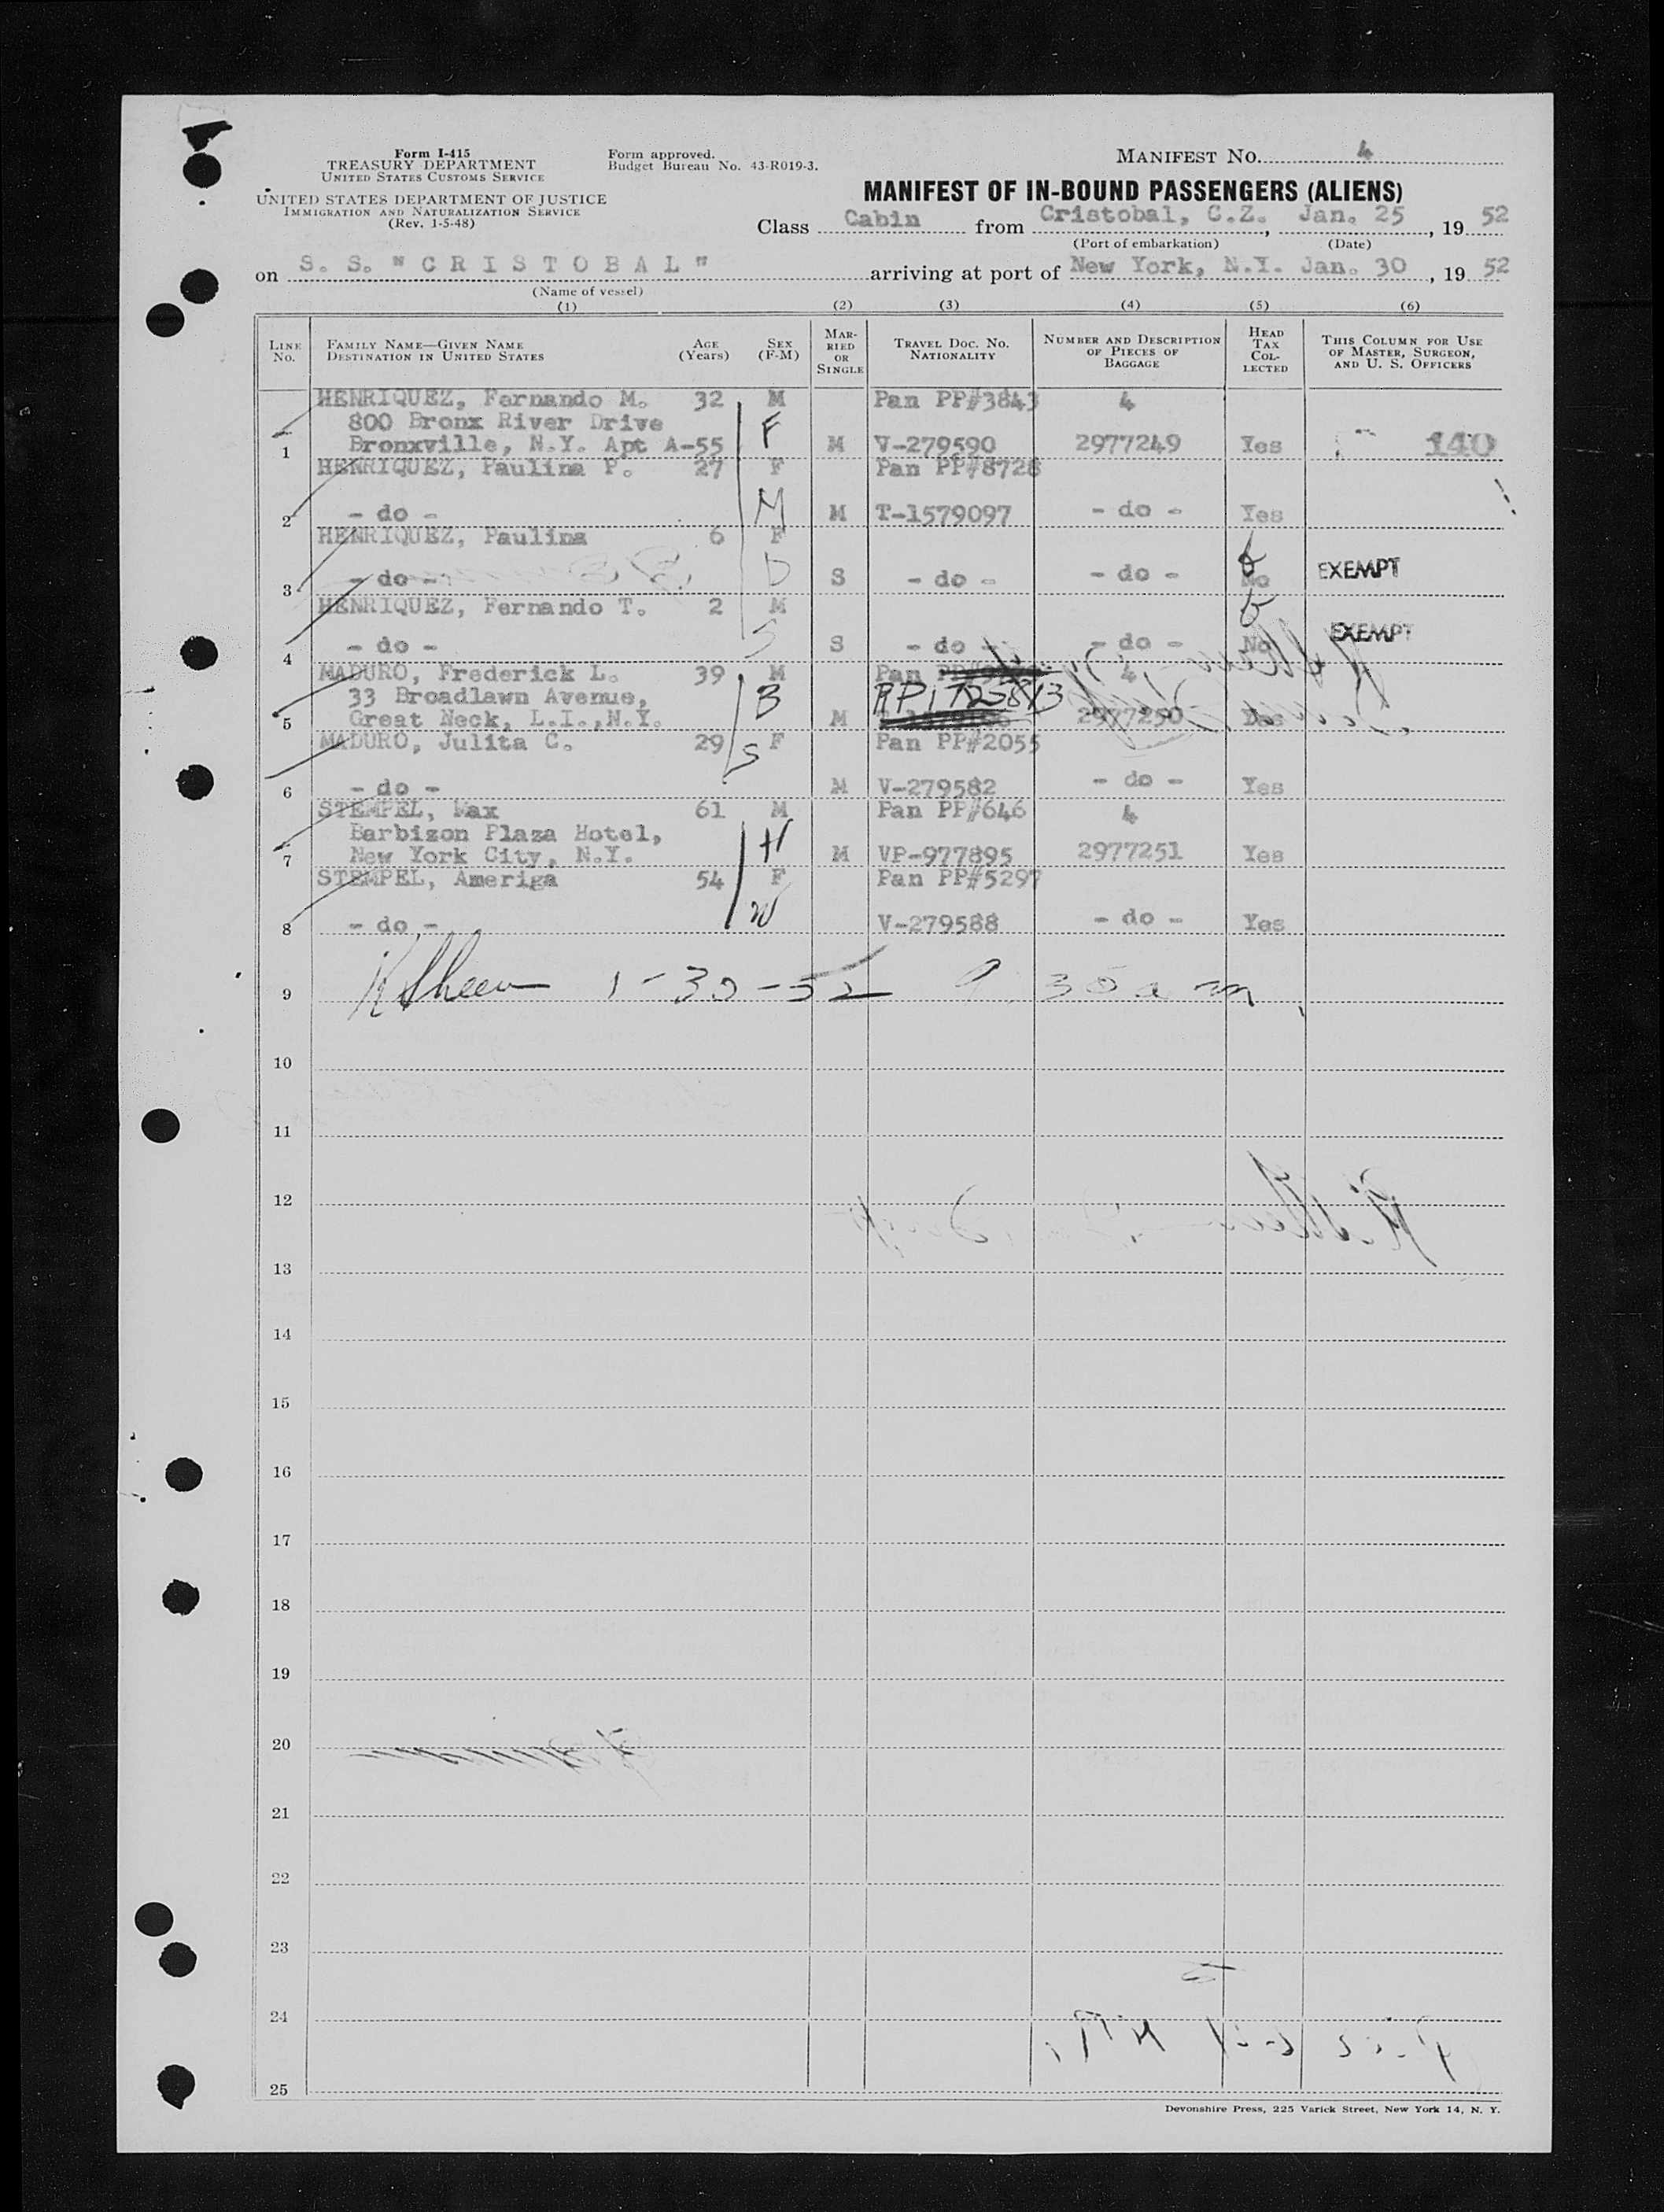 Form I-415
TREASURY DEPARTMENT
UNITED STATES CUSTOMS SERVICE
UNITED STATES DEPARTMENT OF JUSTICE
IMMIGRATION AND NATURALIZATION SERVICE
(Rev. 1-5-48)
Form approved.
Budget Bureau No. 43-R019-3.
MANIFEST No. 4
MANIFEST OF IN-BOUND PASSENGERS (ALIENS)
Class Cabin from Cristobal, C.Z. , Jan. 25 , 19 52
(Port of embarkation) (Date)
on S. S. "C R I S T O B A L" arriving at port of New York, N.Y. Jan. 30 , 19 52
(Name of vessel)
(1) (2) (3) (4) (5) (6)
LINE No. FAMILY NAME—GIVEN NAME DESTINATION IN UNITED STATES AGE (Years) SEX (F-M) MARRIED OR SINGLE TRAVEL DOC. No. NATIONALITY NUMBER AND DESCRIPTION OF PIECES OF BAGGAGE HEAD TAX COLLECTED THIS COLUMN FOR USE OF MASTER, SURGEON, AND U. S. OFFICERS
HENRIQUEZ, Fernando M. 32 M Pan PP#3843 4
800 Bronx River Drive F
1 Bronxville, N.Y. Apt A-55 M V-279590 2977249 Yes 140
HENRIQUEZ, Paulina P. 27 F Pan PP#8728
M
2 - do - M T-1579097 - do - Yes
HENRIQUEZ, Paulina 6 F
3 - do - D S - do - - do - No EXEMPT
HENRIQUEZ, Fernando T. 2 M
4 - do - S S - do - - do - No EXEMPT
MADURO, Frederick L. 39 M Pan 4
33 Broadlawn Avenue, B RP1725813
5 Great Neck, L.I.,N.Y. M 2977250
MADURO, Julita C. 29 F Pan PP#2055
S
6 - do - M V-279582 - do - Yes
STEMPEL, Max 61 M Pan PP#646 4
Barbizon Plaza Hotel, H
7 New York City, N.Y. M VP-977895 2977251 Yes
STEMPEL, Ameriga 54 F Pan PP#5297
W
8 - do - V-279588 - do - Yes
9 1-30-52 9 30 a m
10
11
12
13
14
15
16
17
18
19
20
21
22
23
24
25
Devonshire Press, 225 Varick Street, New York 14, N. Y.